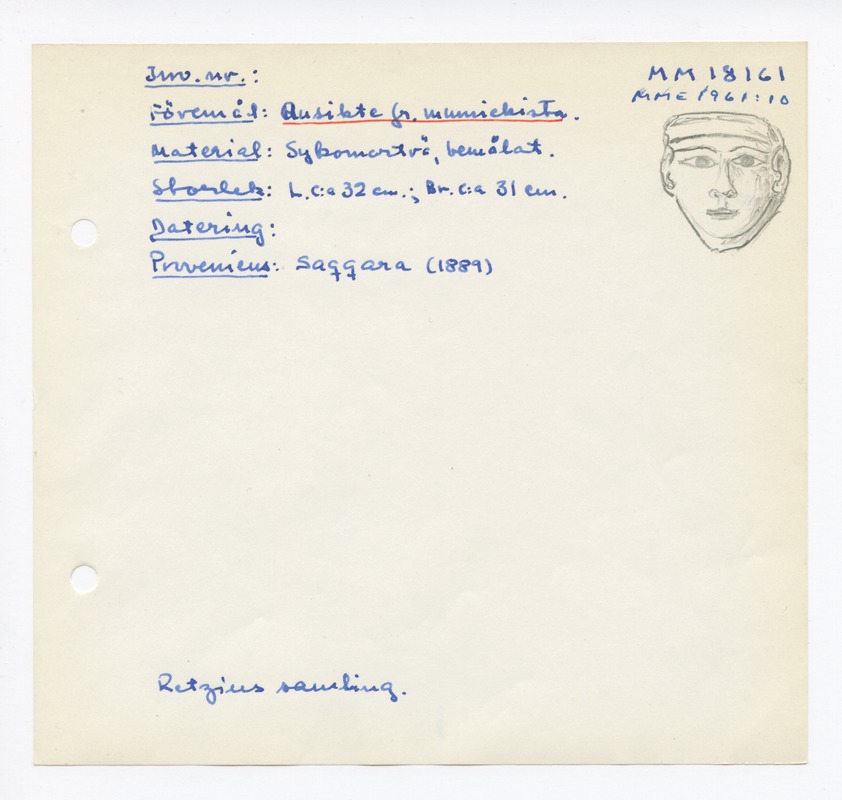 Inv. nr.:
MM 18161
MME 1961:10
Föremål: Ansikte fr. mumiekista.
Material: Sykomorträ, bemålat.
Storlek: L. c:a 32 cm.; Br. c:a 31 cm.
Datering:
Proveniens: Saqqara (1889)
Retzius samling.